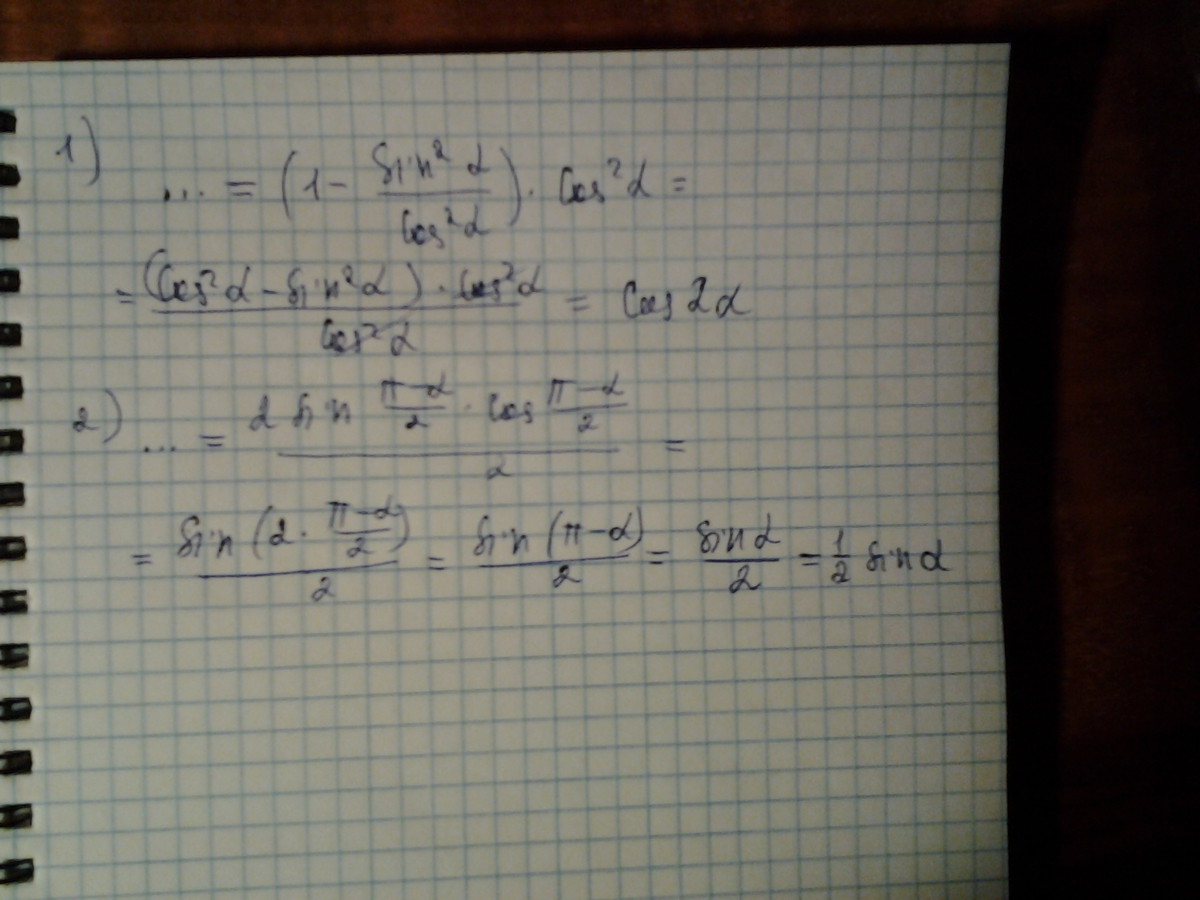 1) ... = (1 - sin²α/cos²α) · cos²α =
= (cos²α - sin²α) · cos²α / cos²α = cos 2α
2) ... = 2 sin π-α/2 · cos π-α/2 / 2 =
= sin (2 · π-α/2) / 2 = sin (π-α) / 2 = sin α / 2 = 1/2 sin α